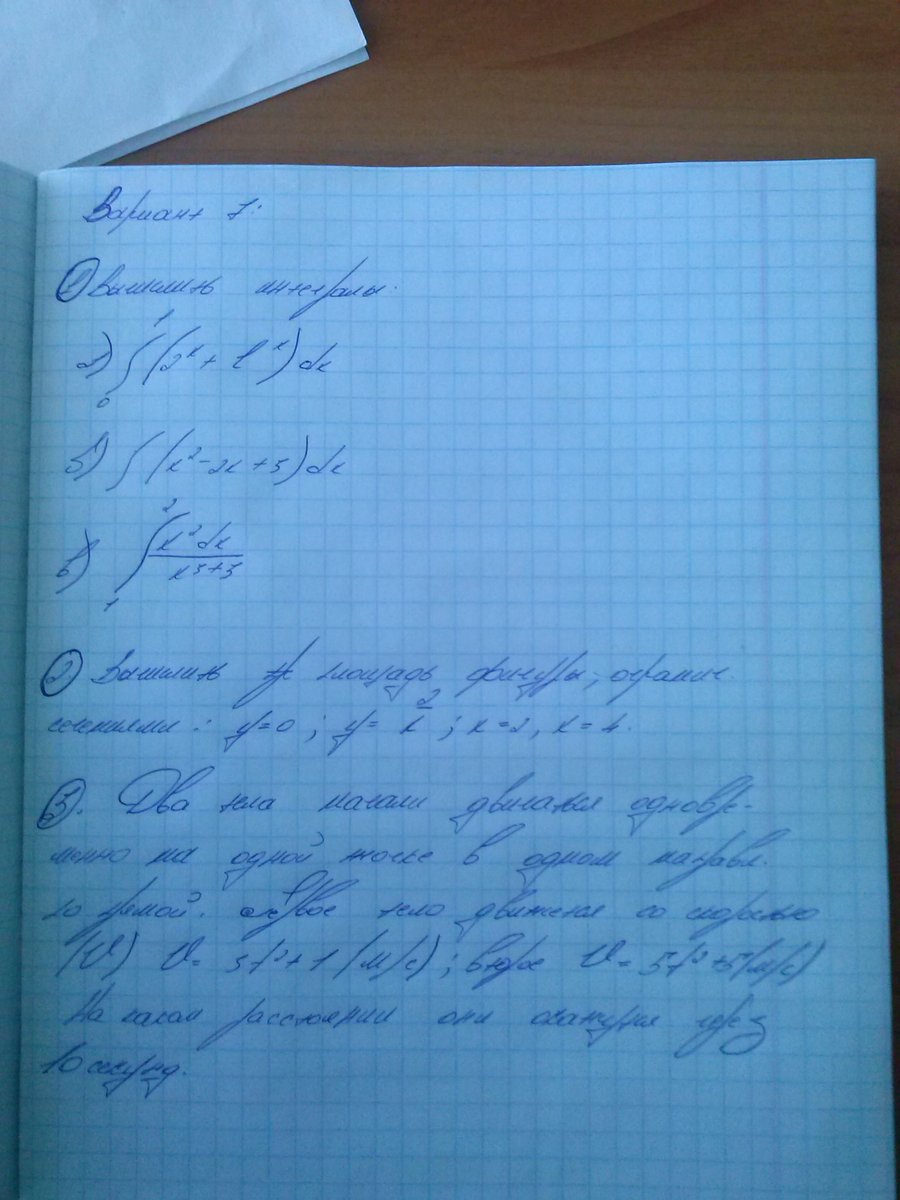 Вариант 7:
① Вычислить интегралы:
а) ∫₀¹ (2ˣ + eˣ) dx
б) ∫ (x² - 2x + 3) dx
в) ∫₁² x² dx / x³+3
② Вычислить площадь фигуры, огранич.
: y=0; y= x²; x=2, x=4.
③. Два тела начали двигаться одновре-
менно из одной точке в одном направл.
по прямой. Первое тело движется со скоростью
(V) V= 3t²+1 (м/с); второе V= 5t²+5 (м/с)
На каком расстоянии они окажутся через
10 секунд.